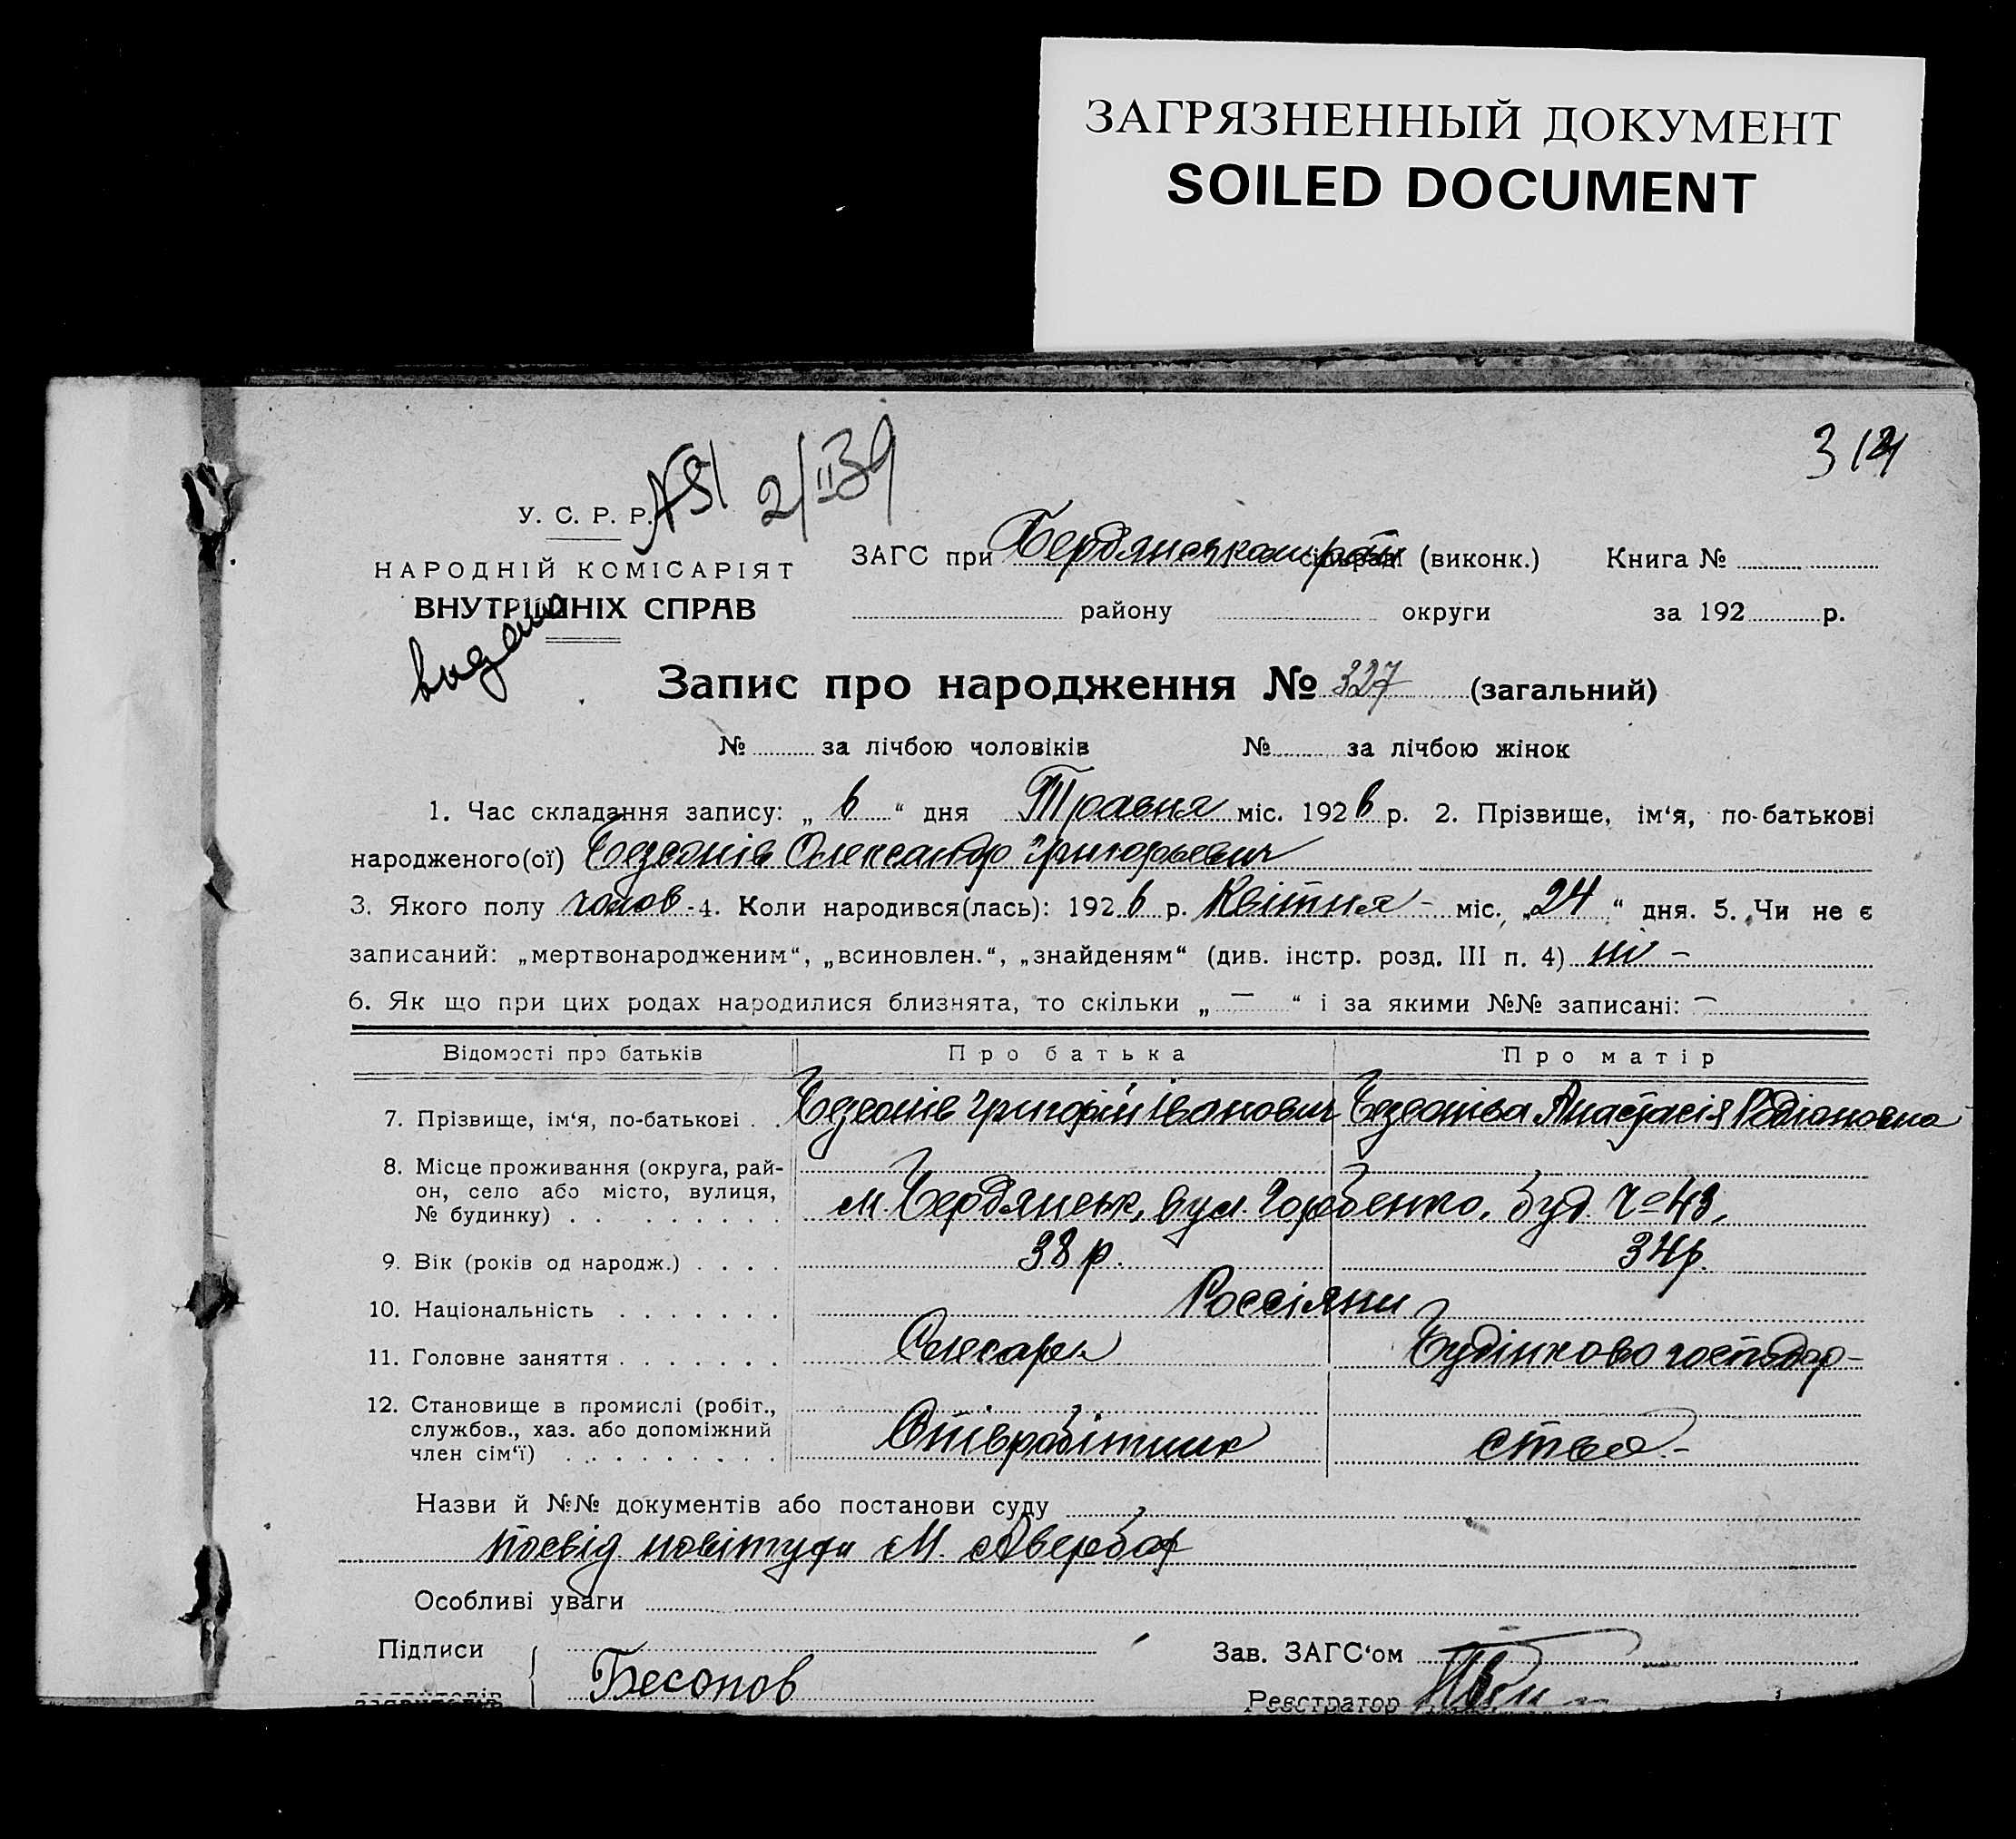 ЗАГРЯЗНЕННЫЙ ДОКУМЕНТ
SOILED DOCUMENT
2/II 39
У. С. Р. Р.
НАРОДНІЙ КОМІСАРІЯТ
ВНУТРІШНІХ СПРАВ
видано
ЗАГС при (виконк.) Книга №
району округи за 192 р.
Запис про народження № 327 (загальний)
№ за лічбою чоловіків № за лічбою жінок
1. Час складання запису: „ 6 “ дня Травня міс. 1926 р. 2. Прізвище, ім‘я, по-батькові
народженого(ої) Безсонів Олександр Григорьевич
3. Якого полу чолов - 4. Коли народився(лась): 1926 р. Квітня - міс. „ 24 “ дня. 5. Чи не є
записаний: „мертвонародженим“, „всиновлен.“, „знайденям“ (див. інстр. розд. III п. 4) ні -
6. Як що при цих родах народилися близнята, то скільки „ — “ і за якими №№ записані: —
Відомості про батьків Про батька Про матір
7. Прізвище, ім‘я, по-батькові . . Безсонів Григорій Іванович Безсоніва Анастасія Родіоновна
8. Місце проживання (округа, рай-
он, село або місто, вулиця,
№ будинку) . . . . . . . . . м. Бердянськ, вул. Горбенко, буд. № 43,
9. Вік (років од народж.) . . . . 38 р. 34 р.
10. Національність . . . . . . . Россіяни
11. Головне заняття . . . . . . . Слесарь Будінково господар-
12. Становище в промислі (робіт.,
службов., хаз. або допоміжний
член сім‘ї) . . . . . . . . . Співробітник ство -
Назви й №№ документів або постанови суду
посвід. повітухи М. Авербах
Особливі уваги
Підписи Зав. ЗАГС‘ом
Бесонов
Реєстратор